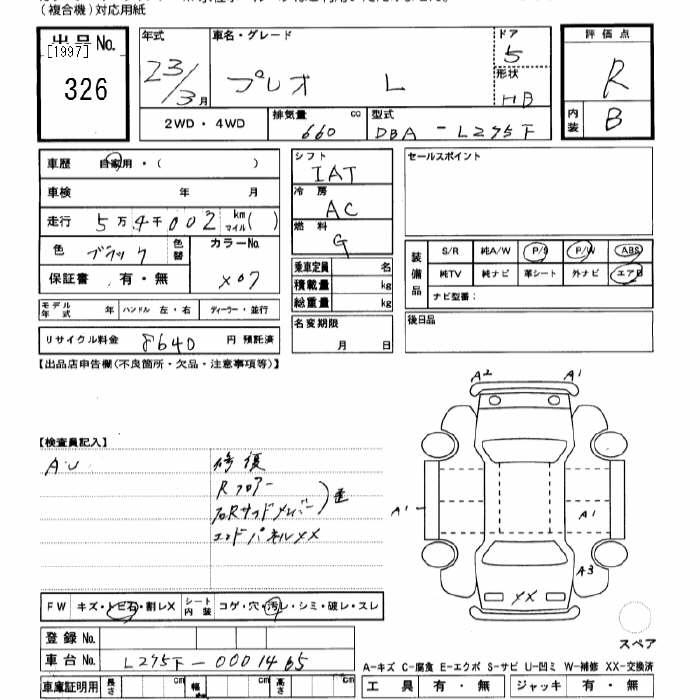 (複合機)対応用紙
出品No.
[1997]
326
年式 23/3月
車名・グレード プレオ L
ドア 5
形状 HB
評価点 R
内装 B
2WD・4WD
排気量 660 cc
型式 DBA-L275F
車歴 自家用・( )
車検 年 月
走行 5万4千002 km マイル( )
色 ブラック 色替
カラーNo. X07
保証書 有・無
モデル年式 年 ハンドル 左・右 ディーラー・並行
リサイクル料金 8640 円 預託済
シフト IAT
冷房 AC
燃料 G
乗車定員 名
積載量 kg
総重量 kg
名変期限 月 日
セールスポイント
装備品
S/R 純A/W P/S P/W ABS
純TV 純ナビ 革シート 外ナビ エアB
ナビ型番:
後日品
【出品店申告欄(不良箇所・欠品・注意事項等)】
【検査員記入】
A.U
修復
Rフロアー
右Rサイドメンバー
エンドパネルXX
A2 A1
A1 A1
A3
XX
スペア
FW キズ・トビ石・割レX シート内装 コゲ・穴・汚レ・シミ・破レ・スレ
登録No.
車台No. L275F-0001465
車庫証明用 長さ cm 幅 cm 高さ cm
A-キズ C-腐食 E-エクボ S-サビ U-凹ミ W-補修 XX-交換済
工具 有・無 ジャッキ 有・無